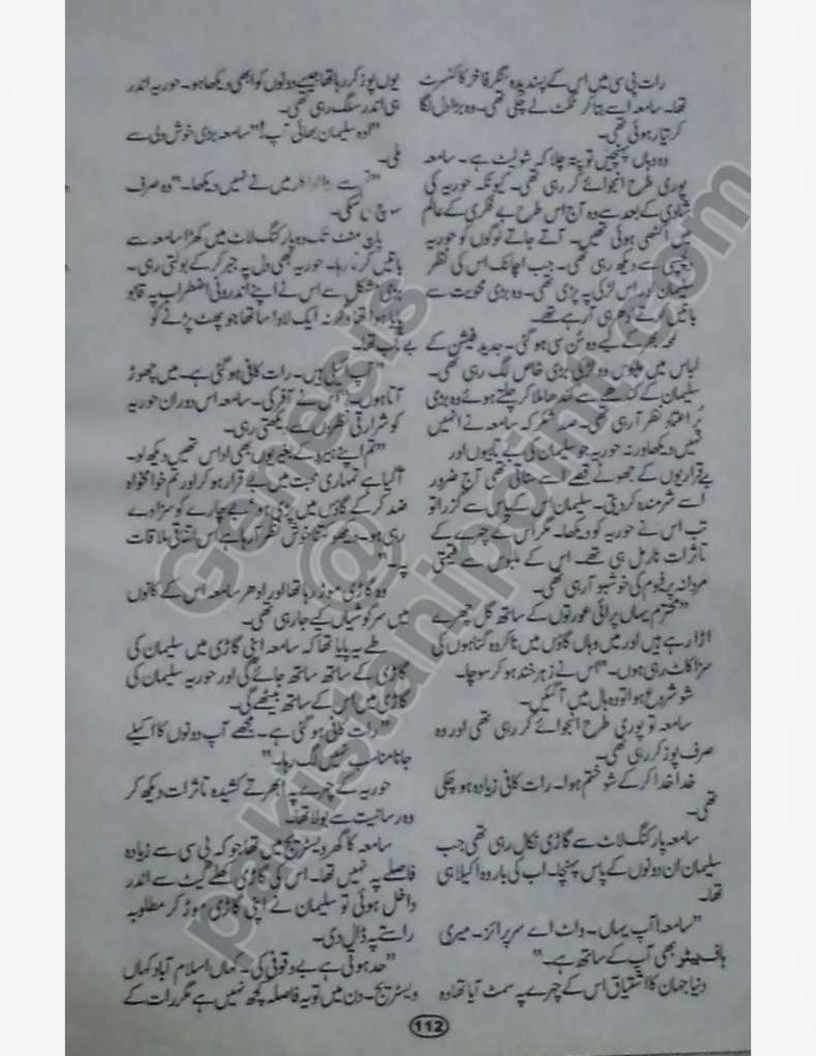 رات پی سی میں اس کے پسندیدہ سنگر فاخر کا کنسرٹ
تھا۔ سامعہ اسے بتا کر ٹکٹ لے چکی تھی۔ وہ بڑا دل لگا
کر تیار ہوئی تھی۔
وہ وہاں پہنچیں تو پتہ چلا کہ شو لیٹ ہے۔ سامعہ
پوری طرح انجوائے کر رہی تھی۔ کیونکہ حوریہ کی
شادی کے بعد سے وہ آج اس طرح بے فکری کے عالم
میں اکٹھی ہوئی تھیں۔ آتے جاتے لوگوں کو حوریہ
دلچسپی سے دیکھ رہی تھی۔ جب اچانک اس کی نظر
سلیمان اور اس لڑکی پہ پڑی تھی۔ وہ بڑی محویت سے
باتیں کرتے ادھر ہی آ رہے تھے۔
لمحہ بھر کے لیے وہ سن سی ہو گئی۔ جدید فیشن کے
لباس میں ملبوس وہ لڑکی بڑی خاص لگ رہی تھی۔
سلیمان کے کندھے سے کندھا ملا کر چلتے ہوئے وہ بڑی
پر اعتماد نظر آ رہی تھی۔ صد شکر کہ سامعہ نے انھیں
نہیں دیکھا ورنہ حوریہ جو سلیمان کی بے تابیوں اور
بے قراریوں کے جھوٹے قصے اسے سناتی تھی آج ضرور
اسے شرمندہ کر دیتی۔ سلیمان اس کے پاس سے گزرا تو
تب اس نے حوریہ کو دیکھا۔ مگر اس کے چہرے کے
تاثرات نارمل ہی تھے۔ اس کے ملبوس سے قیمتی
مردانہ پرفیوم کی خوشبو آ رہی تھی۔
"محترم یہاں پرائی عورتوں کے ساتھ گل چھرے
اڑا رہے ہیں اور میں وہاں گاؤں میں ناکردہ گناہوں کی
سزا کاٹ رہی ہوں۔" اس نے زہر خند ہو کر سوچا۔
شو شروع ہوا تو وہ ہال میں آ گئیں۔
سامعہ تو پوری طرح انجوائے کر رہی تھی اور وہ
صرف پوز کر رہی تھی۔
خدا خدا کر کے شو ختم ہوا۔ رات کافی زیادہ ہو چکی
تھی۔
سامعہ پارکنگ لاٹ سے گاڑی نکال رہی تھی جب
سلیمان ان دونوں کے پاس پہنچا۔ اب کی بار وہ اکیلا ہی
تھا۔
"سامعہ! آپ یہاں۔ واٹ اے سرپرائز۔ میری
ہاف بیٹر بھی آپ کے ساتھ ہے۔"
دنیا جہان کا اشتیاق اس کے چہرے پہ سمٹ آیا تھا وہ
یوں پوز کر رہا تھا جیسے دونوں کو ابھی دیکھا ہو۔ حوریہ اندر
ہی اندر سلگ رہی تھی۔
"اوہ سلیمان بھائی آپ!" سامعہ بڑی خوش دلی سے
ملی۔
میں نے نہیں دیکھا۔" وہ صرف
سوچ ہی سکی۔
پانچ منٹ تک وہ پارکنگ لاٹ میں کھڑا سامعہ سے
باتیں کرتا رہا۔ حوریہ بھی دل پہ جبر کر کے بولتی رہی۔
بڑی مشکل سے اس نے اپنے اندرونی اضطراب پہ قابو
پایا ہوا تھا ورنہ ایک لاوا سا تھا جو پھٹ پڑنے کو
بے تاب تھا۔
"آپ اکیلی ہیں۔ رات کافی ہو گئی ہے۔ میں چھوڑ
آتا ہوں۔" اس نے آفر کی۔ سامعہ اس دوران حوریہ
کو شرارتی نظروں سے دیکھتی رہی۔
"تم اپنے ہیرو کے بغیر یوں بھی اداس تھیں دیکھ لو۔
آ گیا ہے تمہاری محبت میں بے قرار ہو کر اور تم خوامخواہ
ضد کر کے گاؤں میں پڑی ہو بے چارے کو سزا دے
رہی ہو۔ دیکھو کتنا خوش نظر آ رہا ہے اس اتفاقی ملاقات
پہ۔"
وہ گاڑی موڑ رہا تھا اور ادھر سامعہ اس کے کانوں
میں سرگوشیاں کیے جا رہی تھی۔
طے یہ پایا تھا کہ سامعہ اپنی گاڑی میں سلیمان کی
گاڑی کے ساتھ ساتھ جائے گی اور حوریہ سلیمان کی
گاڑی میں اس کے ساتھ بیٹھے گی۔
"رات کافی ہو گئی ہے۔ مجھے آپ دونوں کا اکیلے
جانا مناسب نہیں لگ رہا۔"
حوریہ کے چہرے پہ ابھرتے کشیدہ تاثرات دیکھ کر
وہ رسانیت سے بولا تھا۔
سامعہ کا گھر ویسٹریج میں تھا جو کہ پی سی سے زیادہ
فاصلے پہ نہیں تھا۔ اس کی گاڑی کھلے گیٹ سے اندر
داخل ہوئی تو سلیمان نے اپنی گاڑی موڑ کر مطلوبہ
راستے پہ ڈال دی۔
"حد ہوتی ہے بے وقوفی کی۔ کہاں اسلام آباد کہاں
ویسٹریج۔ دن میں تو یہ فاصلہ کچھ نہیں ہے مگر رات کے
112
Genasis
@
pakistanipoint.com